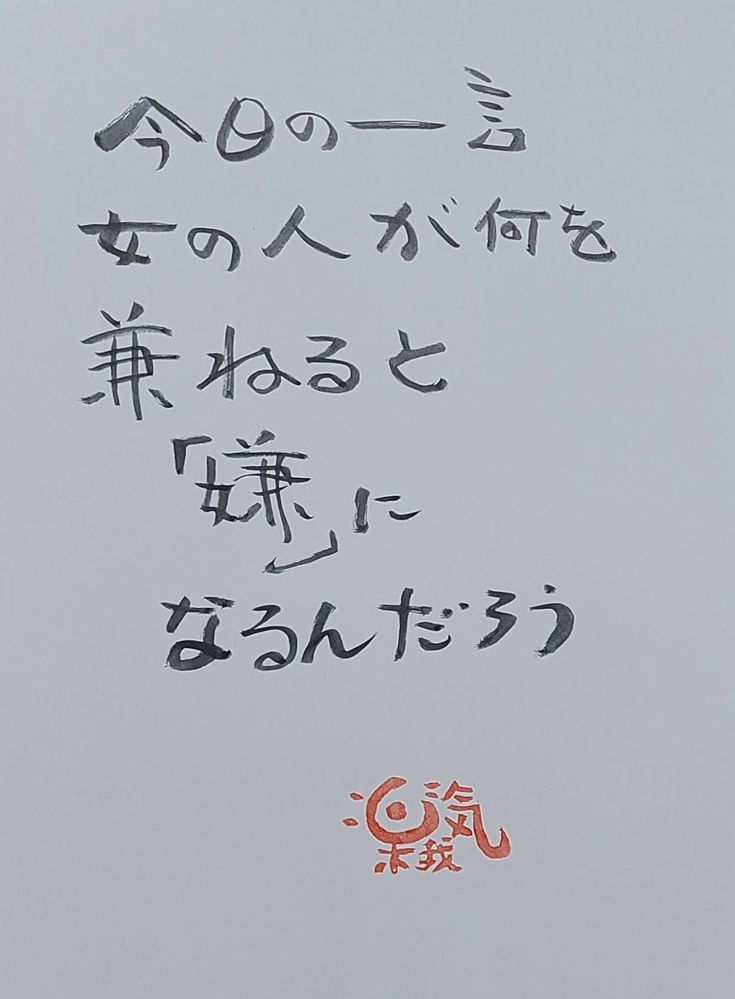 今日の一言
女の人が何を
兼ねると
「嫌」に
なるんだろう